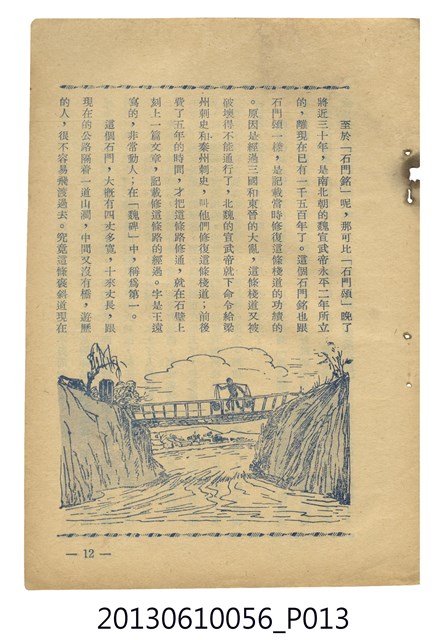 至於「石門銘」呢，那可比「石門頌」晚了
將近三十年，是南北朝的魏宣武帝永平二年所立
的，離現在已有一千五百年了。這個石門銘也跟
石門頌一樣，是記載當時修復這條棧道的功績的
。原因是經過三國和東晉的大亂，這條棧道又被
破壞得不能通行了，北魏的宣武帝就下命令給梁
州刺史和秦州刺史，叫他們修復這條棧道；前後
費了五年的時間，才把這條路修通，就在石壁上
刻上一篇文章，記載修這條路的經過。字是王遠
寫的，非常動人；在「魏碑」中，稱爲第一。
這個石門，大概有四丈多寬，十來丈長，跟
現在的公路隔着一道山澗，中間又沒有橋，遊歷
的人，很不容易飛渡過去。究竟這條褒斜道現在
— 12 —
20130610056_P013